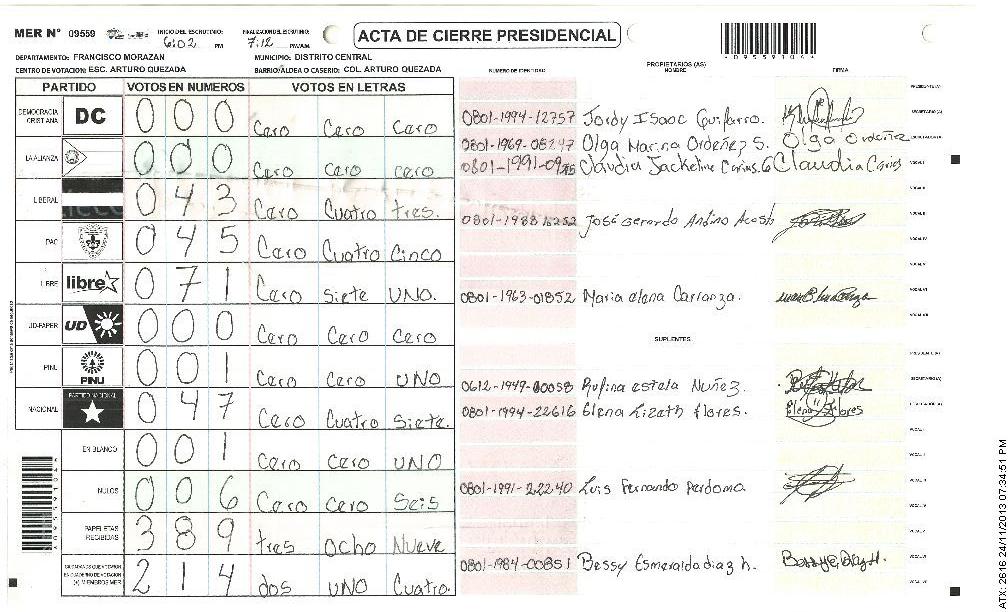 MER Nº 09559 INICIO DEL ESCRUTINIO: 6:02 PM FINALIZACION DEL ESCRUTINIO: 7:12 PM/AM ACTA DE CIERRE PRESIDENCIAL
DEPARTAMENTO: FRANCISCO MORAZAN MUNICIPIO: DISTRITO CENTRAL
CENTRO DE VOTACION: ESC. ARTURO QUEZADA BARRIO/ALDEA O CASERIO: COL. ARTURO QUEZADA
PARTIDO VOTOS EN NUMEROS VOTOS EN LETRAS
DEMOCRACIA CRISTIANA DC 0 0 0 Cero Cero Cero
LA ALIANZA 0 0 0 Cero Cero cero
LIBERAL 0 4 3 Cero Cuatro tres.
PAC 0 4 5 Cero Cuatro Cinco
LIBRE libre 0 7 1 Cero Siete UNO.
UD-FAPER UD 0 0 0 Cero Cero Cero
PINU PINU 0 0 1 Cero Cero UNO
NACIONAL PARTIDO NACIONAL 0 4 7 Cero Cuatro Siete.
EN BLANCO 0 0 1 Cero Cero UNO
NULOS 0 0 6 Cero Cero Seis
PAPELETAS RECIBIDAS 3 8 9 tres Ocho Nueve
CIUDADANOS QUE VOTARON EN CUADERNO DE VOTACION (+) MIEMBROS MER 2 1 4 dos UNO Cuatro.
NUMERO DE IDENTIDAD PROPIETARIOS (AS) NOMBRE FIRMA
PRESIDENTE (A)
0801-1994-12757 Jordy Isaac Guifarro. SECRETARIO (A)
0801-1969-08247 Olga Marina Ordoñez S. Olga Ordoñez ESCRUTADOR (A)
0801-1991-09 Claudia Jackeline Carias. G Claudia Carias VOCAL I
VOCAL II
0801-1988 José Gerardo Andino Acosta VOCAL III
VOCAL IV
VOCAL V
0801-1963-01852 Maria elena Carranza. VOCAL VI
VOCAL VII
SUPLENTES
PRESIDENTE (A)
0612-1949-00058 Rufina estela Nuñez. SECRETARIO (A)
0801-1994-22616 Elena Lizeth flores. Elena flores ESCRUTADOR (A)
VOCAL I
VOCAL II
0801-1991-22240 Luis Fernando Perdomo VOCAL III
VOCAL IV
VOCAL V
0801-1984-00851 Bessy Esmeralda diaz h. VOCAL VI
VOCAL VII
ATX: 2616 24/11/2013 07:34:51 PM